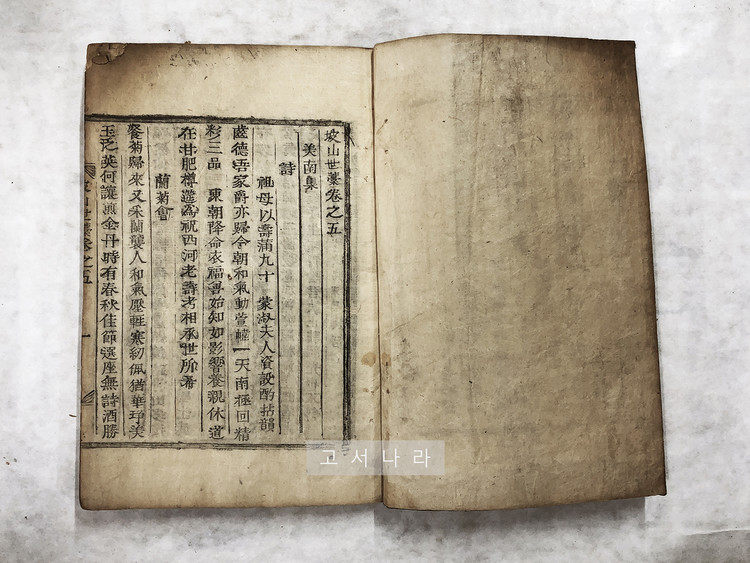 坡山世藁卷之五
美南集
詩
祖母以壽滿九十 蒙淑夫人資設酌拈韻
齒德吾家爵亦歸今朝和氣動萱幃一天南極回精
彩三品 東朝降命衣福善始知如影響養親休道
在甘肥樽筵爲祝西河老壽考相承世所希
蘭菊會
餐菊歸來又采蘭襲人和氣壓輕寒紉佩猶華琤美
玉泛英何讓煎金丹時有春秋佳節選座無詩酒勝
坡山世藁卷之五 一
고서나라